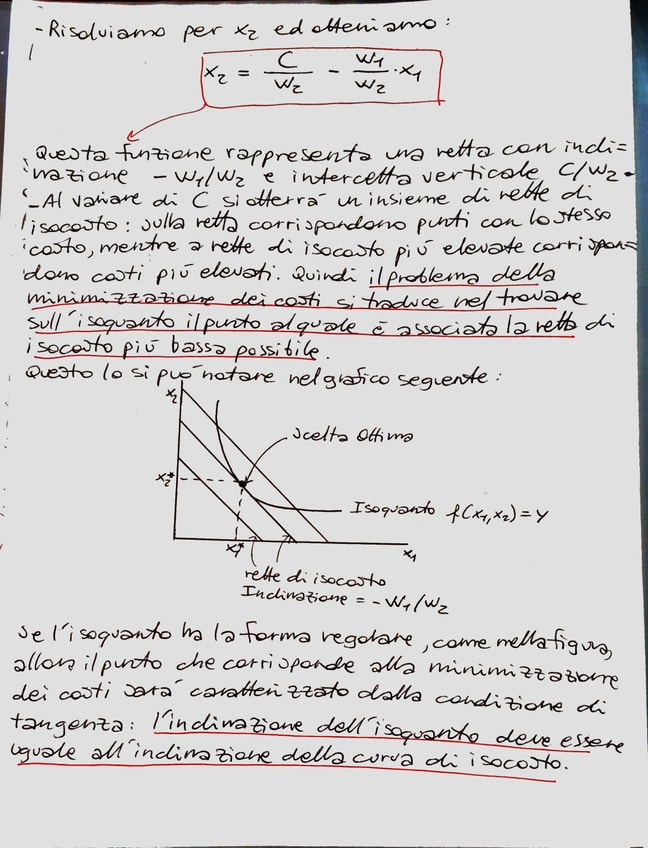 - Risolviamo per x₂ ed otteniamo:
x₂ = C/W₂ - W₁/W₂ · x₁
Questa funzione rappresenta una retta con indi=
nazione - W₁/W₂ e intercetta verticale C/W₂.
- Al variare di C si otterrà un insieme di rette di
isocosto: sulla retta corrispondono punti con lo stesso
costo, mentre a rette di isocosto più elevate corrispon=
dono costi più elevati. Quindi il problema della
minimizzazione dei costi si traduce nel trovare
sull'isoquanto il punto al quale è associata la retta di
isocosto più bassa possibile.
Questo lo si può notare nel grafico seguente:
x₂
Scelta Ottima
x₂*
Isoquanto f(x₁,x₂)=y
x₁*
x₁
rette di isocosto
Inclinazione = - W₁/W₂
Se l'isoquanto ha la forma regolare, come nella figura,
allora il punto che corrisponde alla minimizzazione
dei costi sarà caratterizzato dalla condizione di
tangenza: l'inclinazione dell'isoquanto deve essere
uguale all'inclinazione della curva di isocosto.